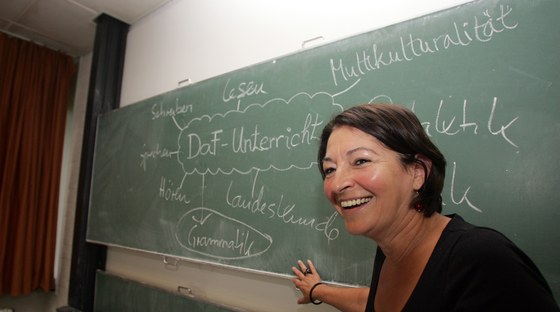 Multikulturalität
lesen
Schreiben
DaF-Unterricht
Hören
Landeskunde
Grammatik